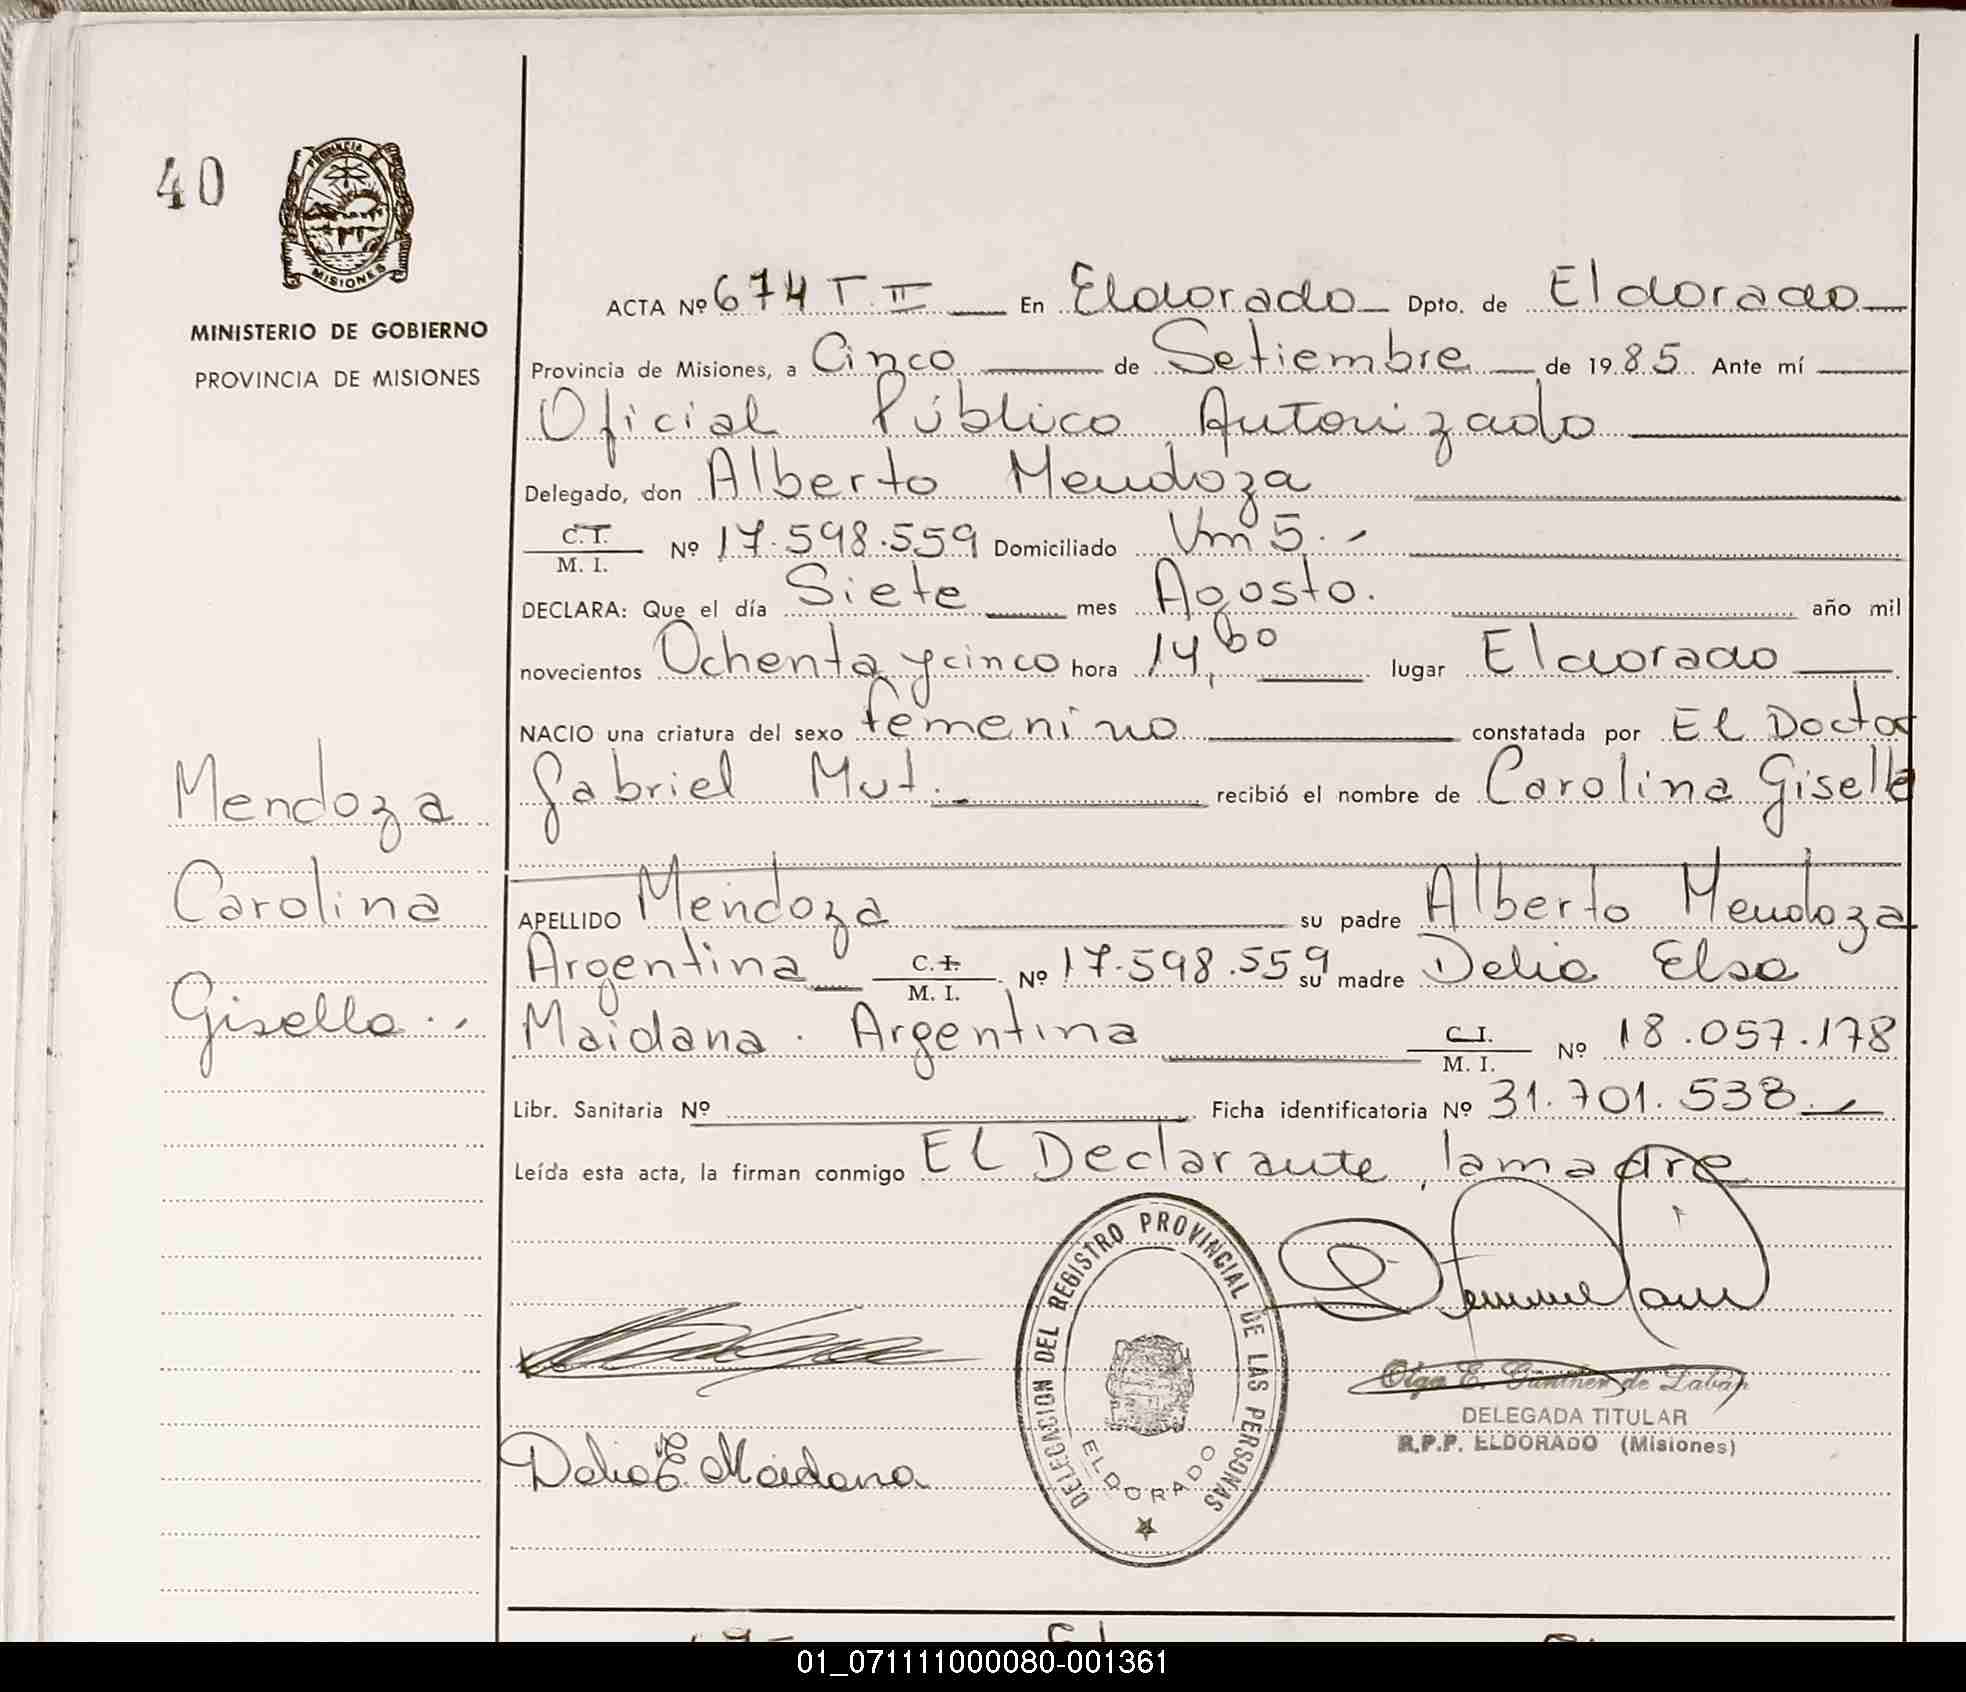 40
PROVINCIA DE MISIONES
MINISTERIO DE GOBIERNO
PROVINCIA DE MISIONES
Mendoza
Carolina
Gisella.-
ACTA Nº 674 T. II En Eldorado Dpto. de Eldorado
Provincia de Misiones, a Cinco de Setiembre de 1985 Ante mí
Oficial Público Autorizado
Delegado, don Alberto Mendoza
C.I. M. I. Nº 17.598.559 Domiciliado Km 5.-
DECLARA: Que el día Siete mes Agosto. año mil
novecientos Ochenta y cinco hora 14, lugar Eldorado
NACIO una criatura del sexo femenino constatada por El Doctor
Gabriel Mut. recibió el nombre de Carolina Gisella
APELLIDO Mendoza su padre Alberto Mendoza
Argentina C.I. M. I. Nº 17.598.559 su madre Delia Elsa
Maidana. Argentina C.I. M. I. Nº 18.057.178
Libr. Sanitaria Nº Ficha identificatoria Nº 31.701.538.-
Leída esta acta, la firman conmigo El Declarante, la madre
DELEGACION DEL REGISTRO PROVINCIAL DE LAS PERSONAS
ELDORADO
Olga E. Günther de Zabán
DELEGADA TITULAR
R.P.P. ELDORADO (Misiones)
Delia E. Maidana
01_071111000080-001361